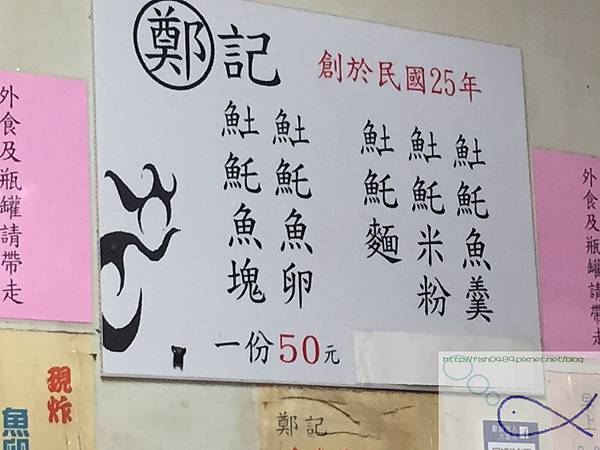 鄭記
創於民國25年
魠魚羹
魠米粉
魠麵
魠魚卵
魠魚塊
一份50元
外食及瓶罐請帶走
外食及瓶罐請帶走
現炸
魚卵
鄭記
http://fish0489.pixnet.net/blog